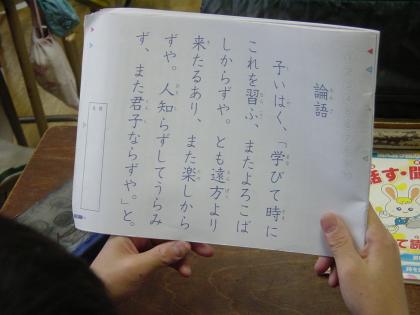 論語
子いはく、「学びて時に
これを習ふ、またよろこば
しからずや。とも遠方より
来たるあり、また楽しから
ずや。人知らずしてうらみ
ず、また君子ならずや。」と。
話す・聞